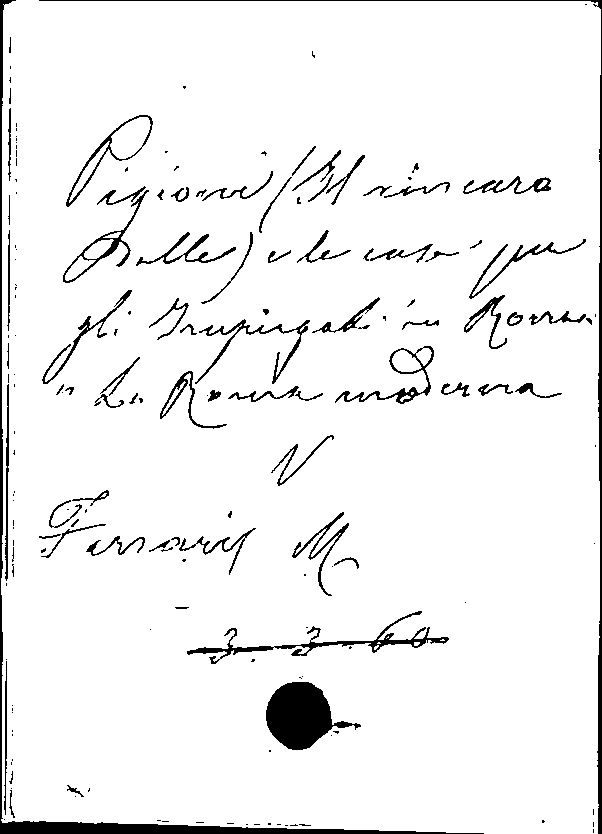 Pigioni (Il rincaro
delle) e le case per
gli Impiegati in Roma
" La Roma moderna
V
Ferraris M
3. 3. 60